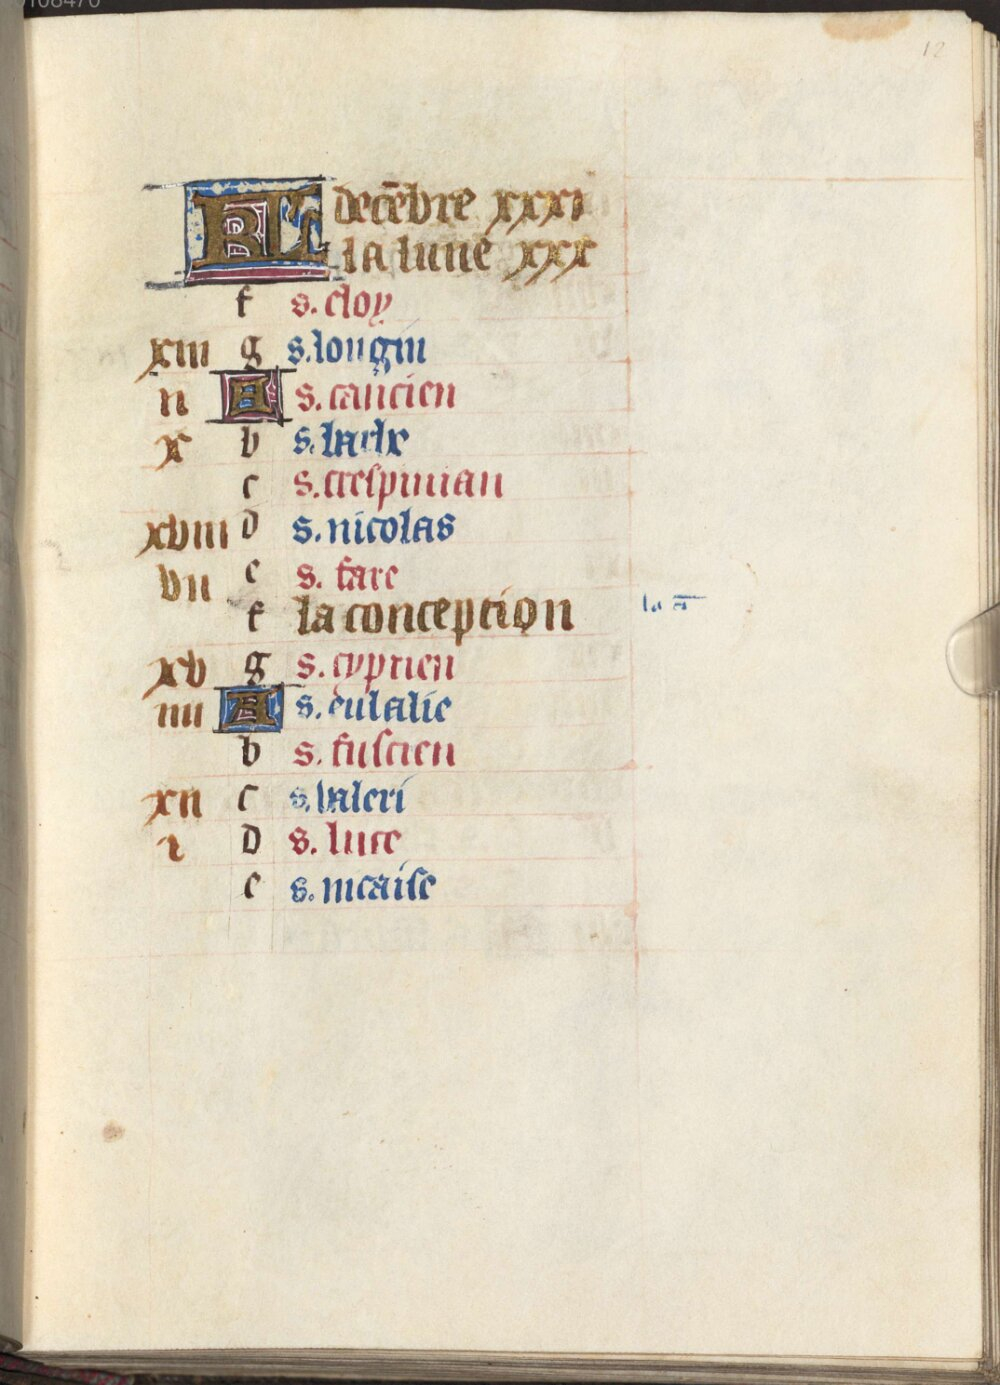 12
KL decēbre xxxi
la lune xxx
f s. eloy
xiii g s. longin
ii A s. cancien
x b s. barbe
c s. crespinian
xviii d s. nicolas
vii e s. fare
f la conception
xv g s. cyprien
iiii A s. eulalie
b s. fuscien
xii c s. valeri
i d s. luce
e s. nicaise